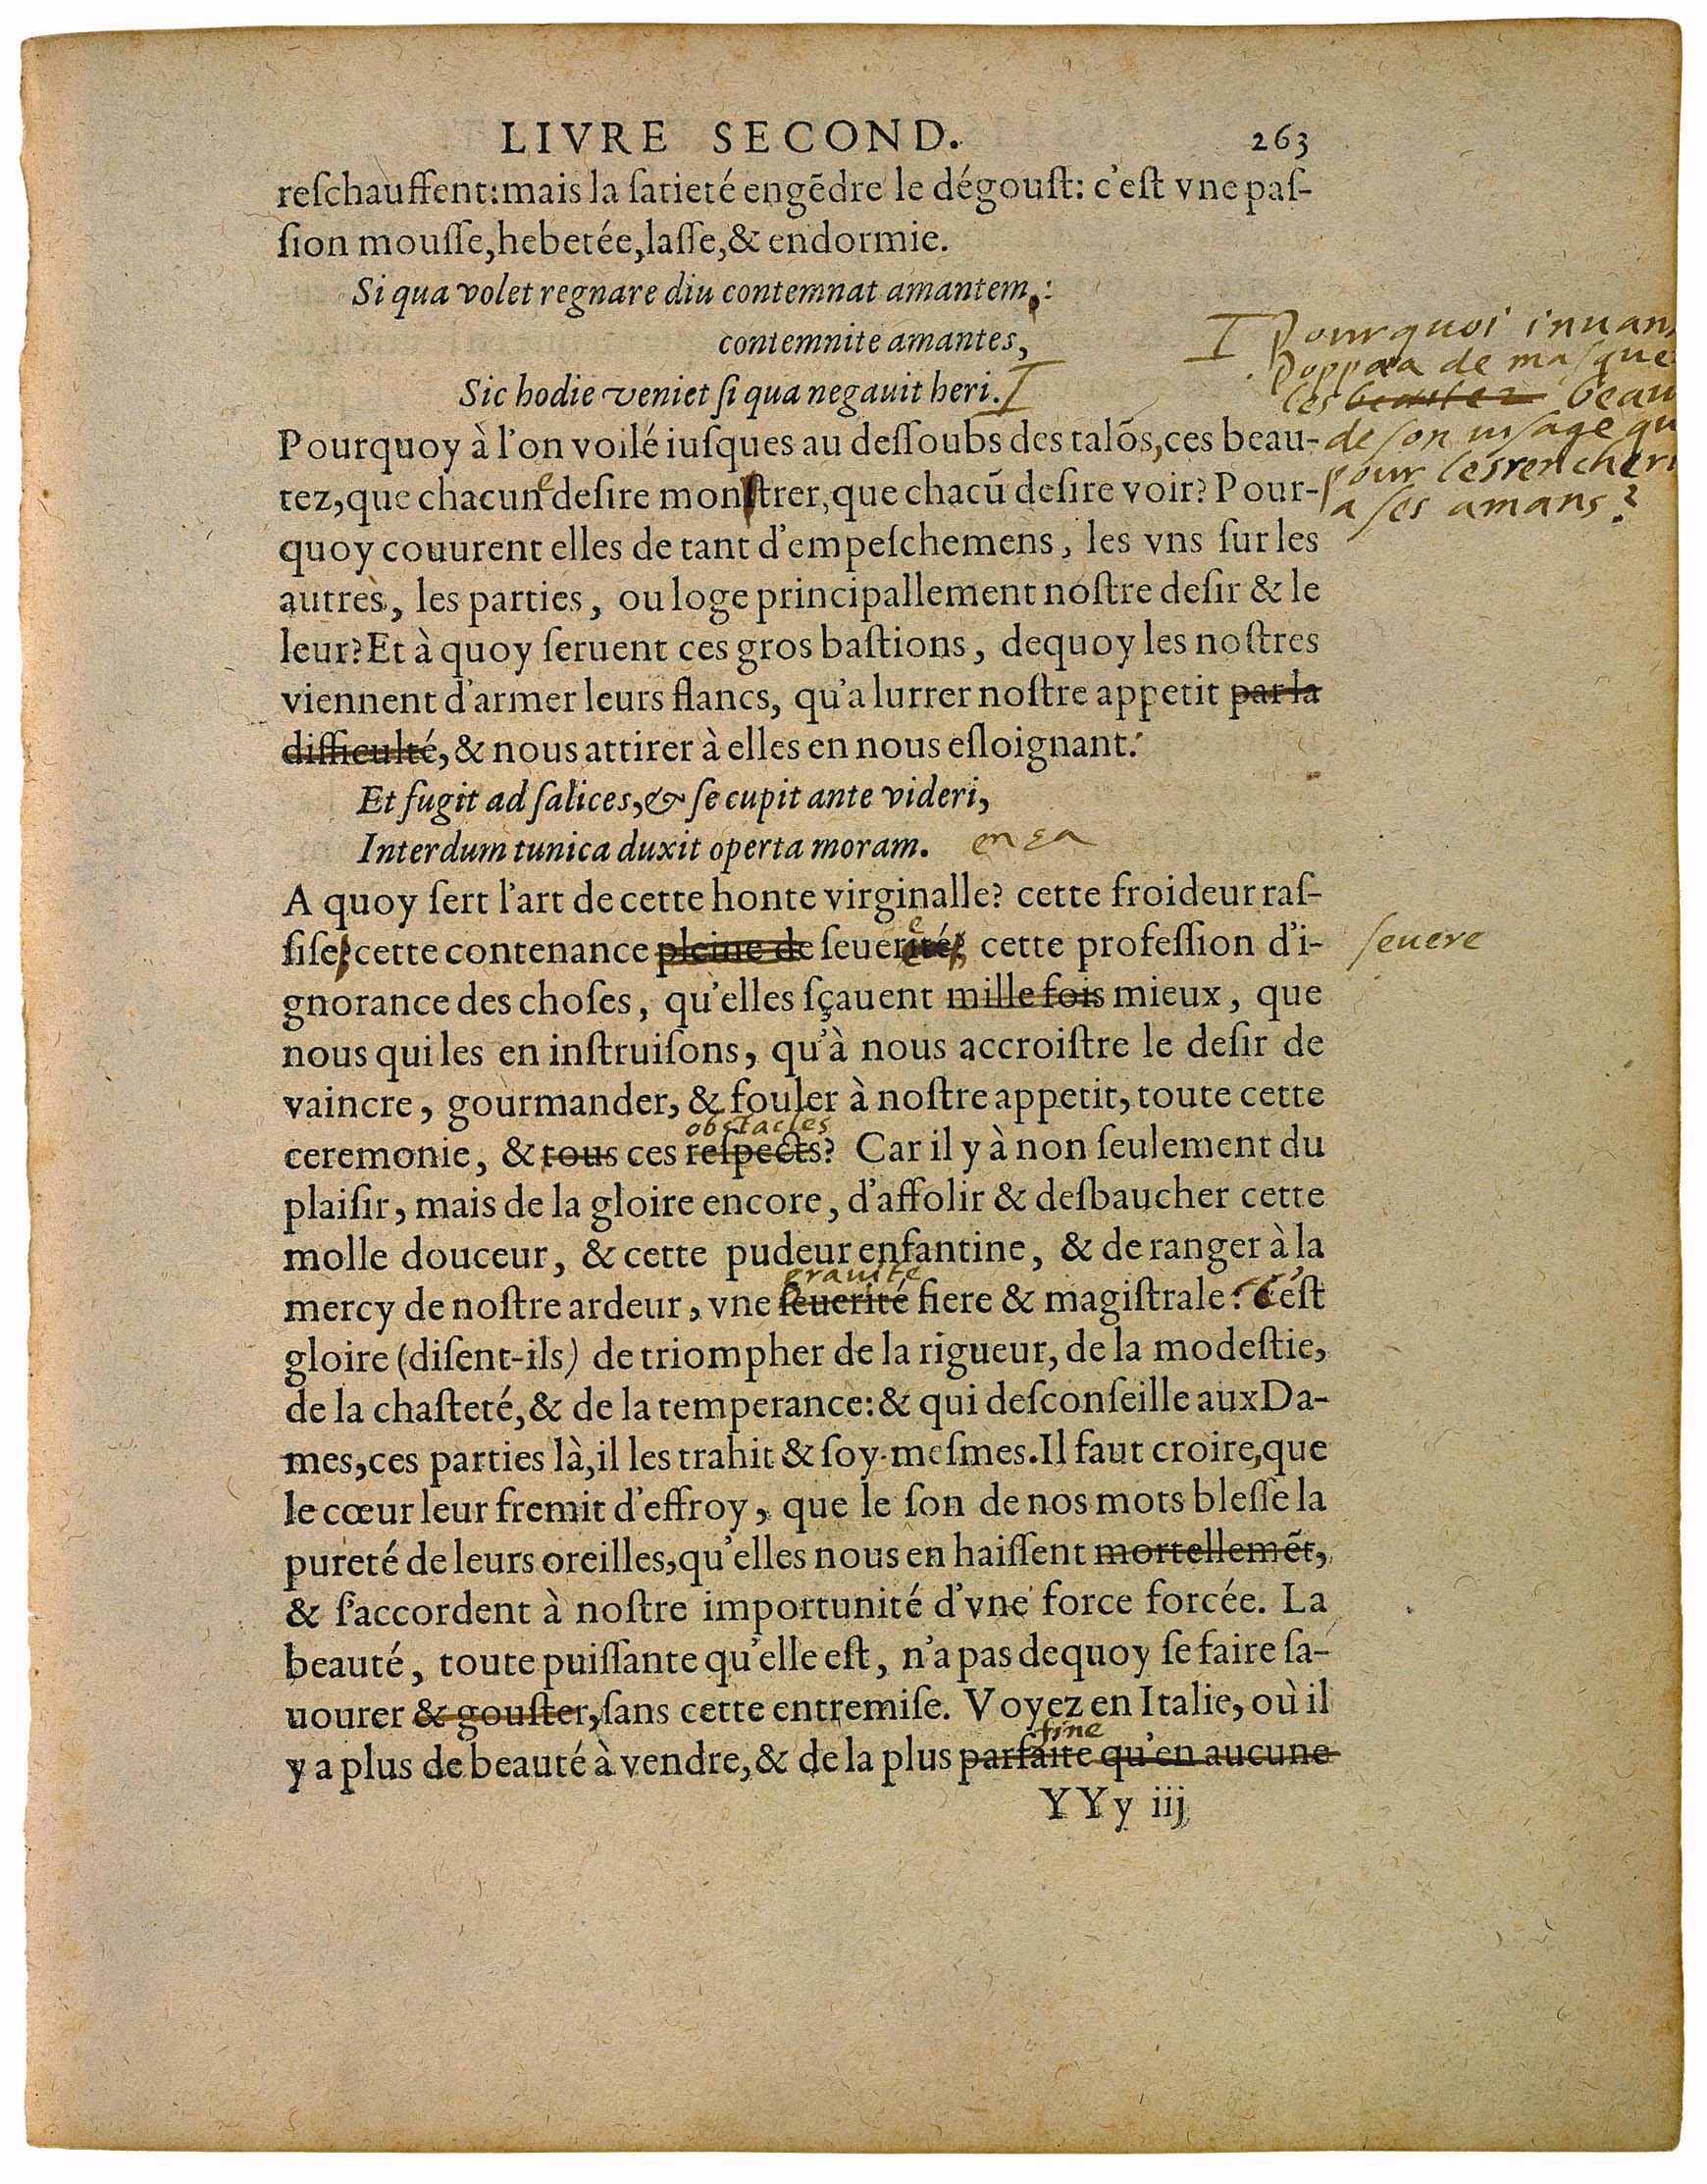 LIVRE SECOND. 263
reſchauffent:mais la ſatieté engẽdre le dégouſt: c'eſt vne paſ-
ſion mouſſe,hebetée,laſſe,& endormie.
Si qua volet regnare diu contemnat amantem,:
contemnite amantes,
Sic hodie veniet ſi qua negauit heri. I
I Pourquoi inuan
Poppæa de maſque
les beautez beau
de ſon uiſage qu
pour les rencheri
a ſes amans?
Pourquoy à l'on voilé iuſques au deſſoubs des talõs,ces beau-
tez,que chacune deſire monſtrer,que chacũ deſire voir? Pour-
quoy couurent elles de tant d'empeſchemens, les vns ſur les
autres, les parties, ou loge principallement noſtre deſir & le
leur? Et à quoy ſeruent ces gros baſtions, dequoy les noſtres
viennent d'armer leurs flancs, qu'a lurrer noſtre appetit par la
difficulté, & nous attirer à elles en nous eſloignant.
Et fugit ad ſalices, & ſe cupit ante videri,
Interdum tunica duxit operta moram. en ça
A quoy ſert l'art de cette honte virginalle? cette froideur raſ-
ſiſe, cette contenance pleine de ſeuerité, cette profeſſion d'i-
ſeuere
gnorance des choſes, qu'elles ſçauent mille fois mieux, que
nous qui les en inſtruiſons, qu'à nous accroiſtre le deſir de
vaincre, gourmander, & fouler à noſtre appetit, toute cette
obstacles
ceremonie, & tous ces reſpects? Car il y à non ſeulement du
plaiſir, mais de la gloire encore, d'affolir & deſbaucher cette
molle douceur, & cette pudeur enfantine, & de ranger à la
grauité
mercy de noſtre ardeur, vne ſeuerité fiere & magiſtrale: C'eſt
gloire (diſent-ils) de triompher de la rigueur, de la modeſtie,
de la chaſteté,& de la temperance:& qui deſconſeille aux Da-
mes,ces parties là,il les trahit & ſoy-meſmes.Il faut croire,que
le cœur leur fremit d'effroy, que le ſon de nos mots bleſſe la
pureté de leurs oreilles,qu'elles nous en haiſſent mortellemẽt,
& ſ'accordent à noſtre importunité d'vne force forcée. La
beauté, toute puiſſante qu'elle eſt, n'a pas dequoy ſe faire ſa-
uourer & gouſter, ſans cette entremiſe. Voyez en Italie, où il
fine
y a plus de beauté à vendre,& de la plus parfaite qu'en aucune
YYy iij